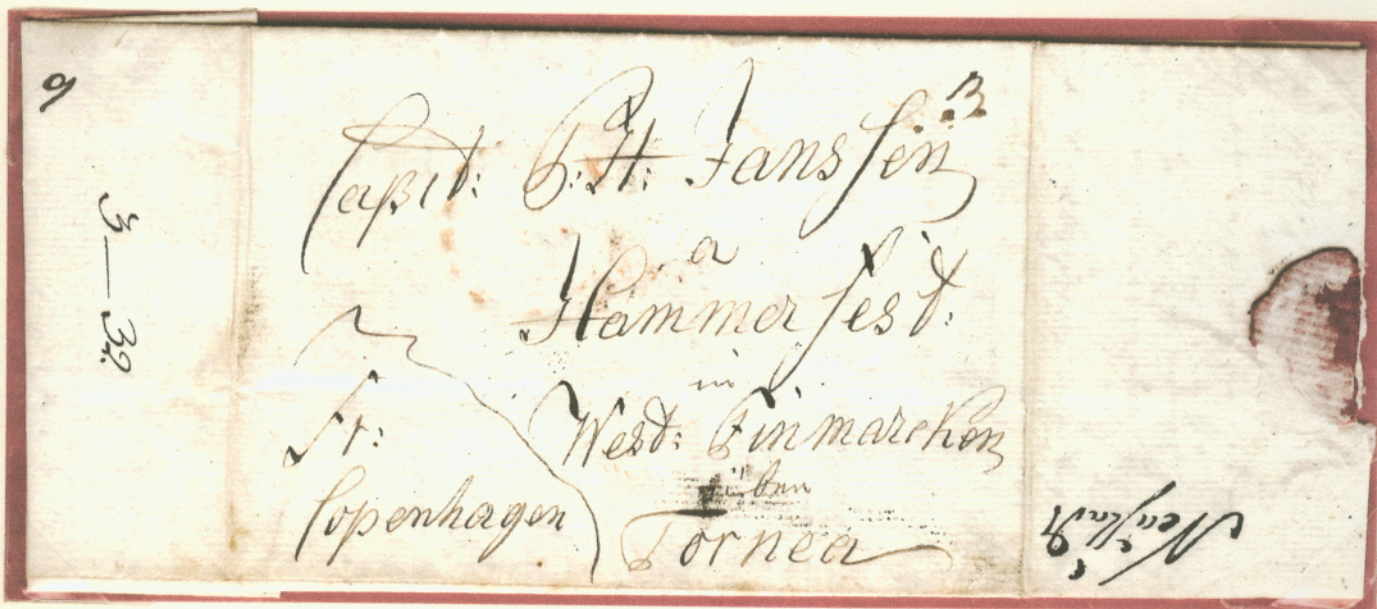 6
3 — 32
Capit: P: H: Janssen
a
Hammerfest:
in
West: Finmarcken
über
Tornea
fr:
Copenhagen